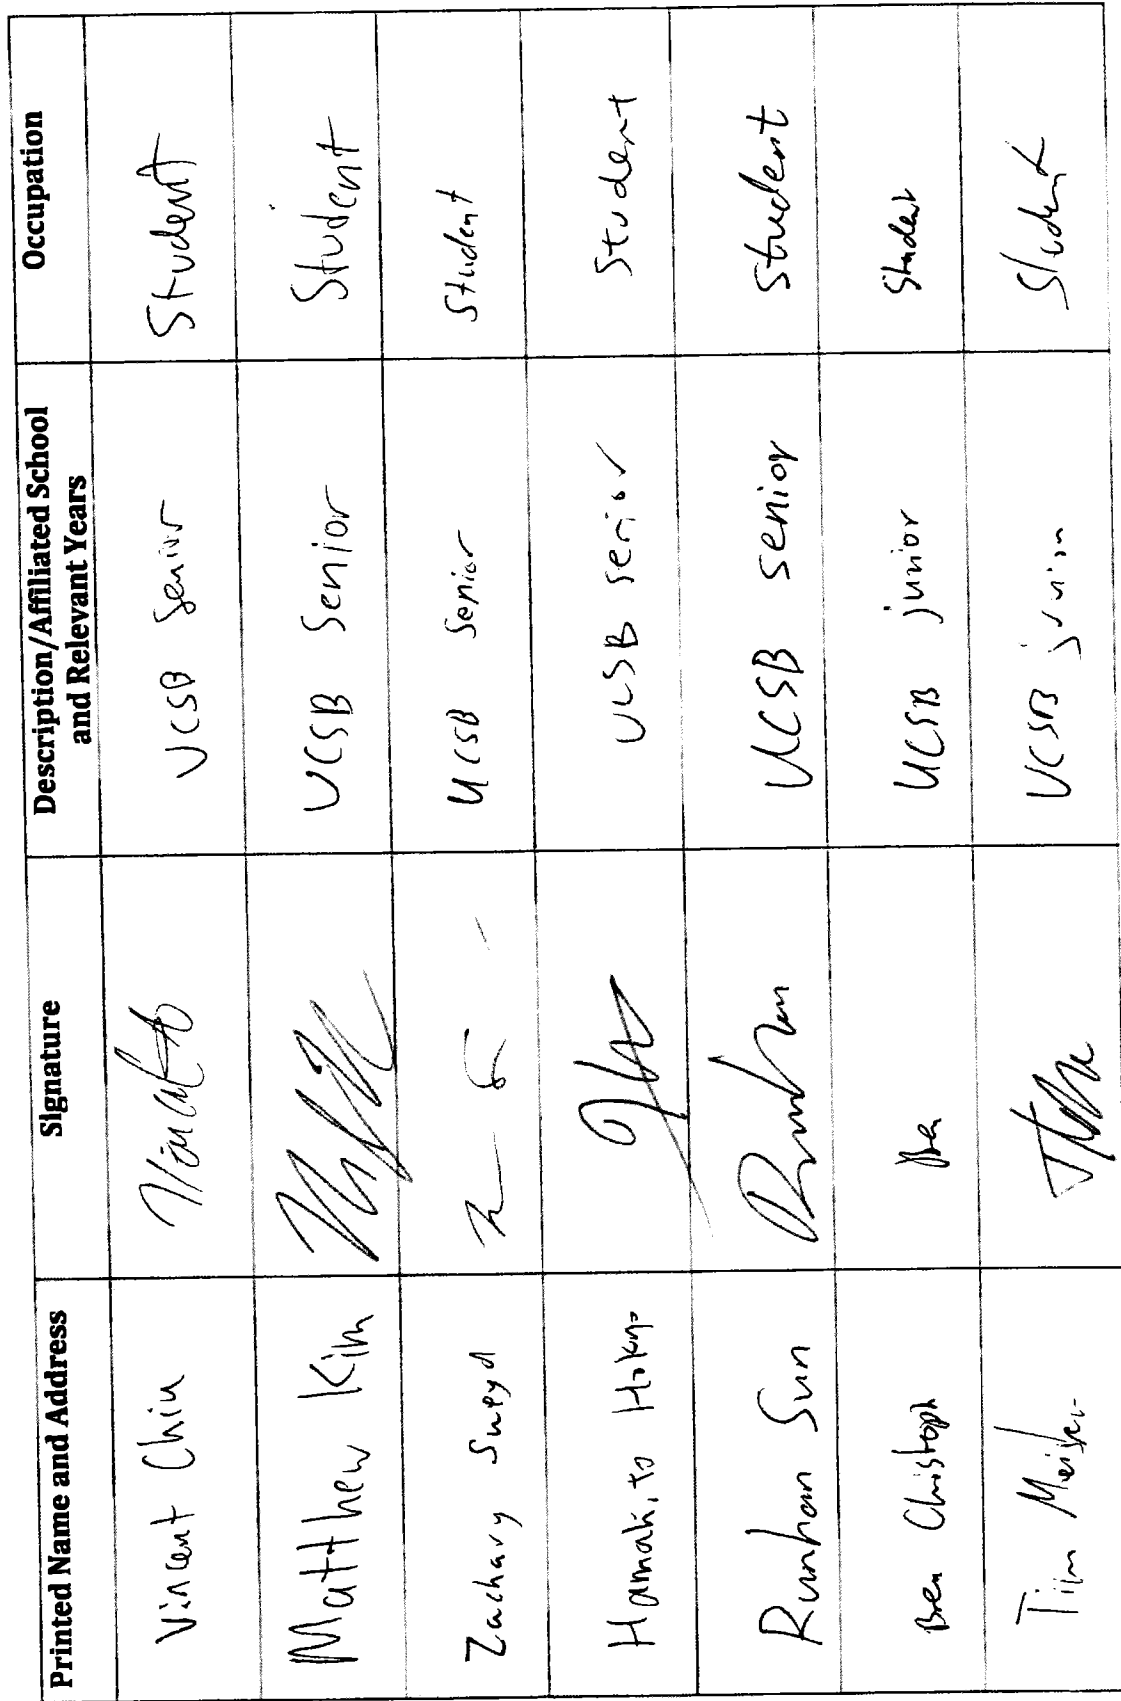 Printed Name and Address Signature Description/Affiliated School and Relevant Years Occupation
Vincent Chiu UCSB Senior Student
Matthew Kim UCSB Senior Student
Zachary UCSB Senior Student
UCSB senior Student
Runhan Sun UCSB senior Student
Ben Christoph Ben UCSB junior Student
Tim UCSB junior Student